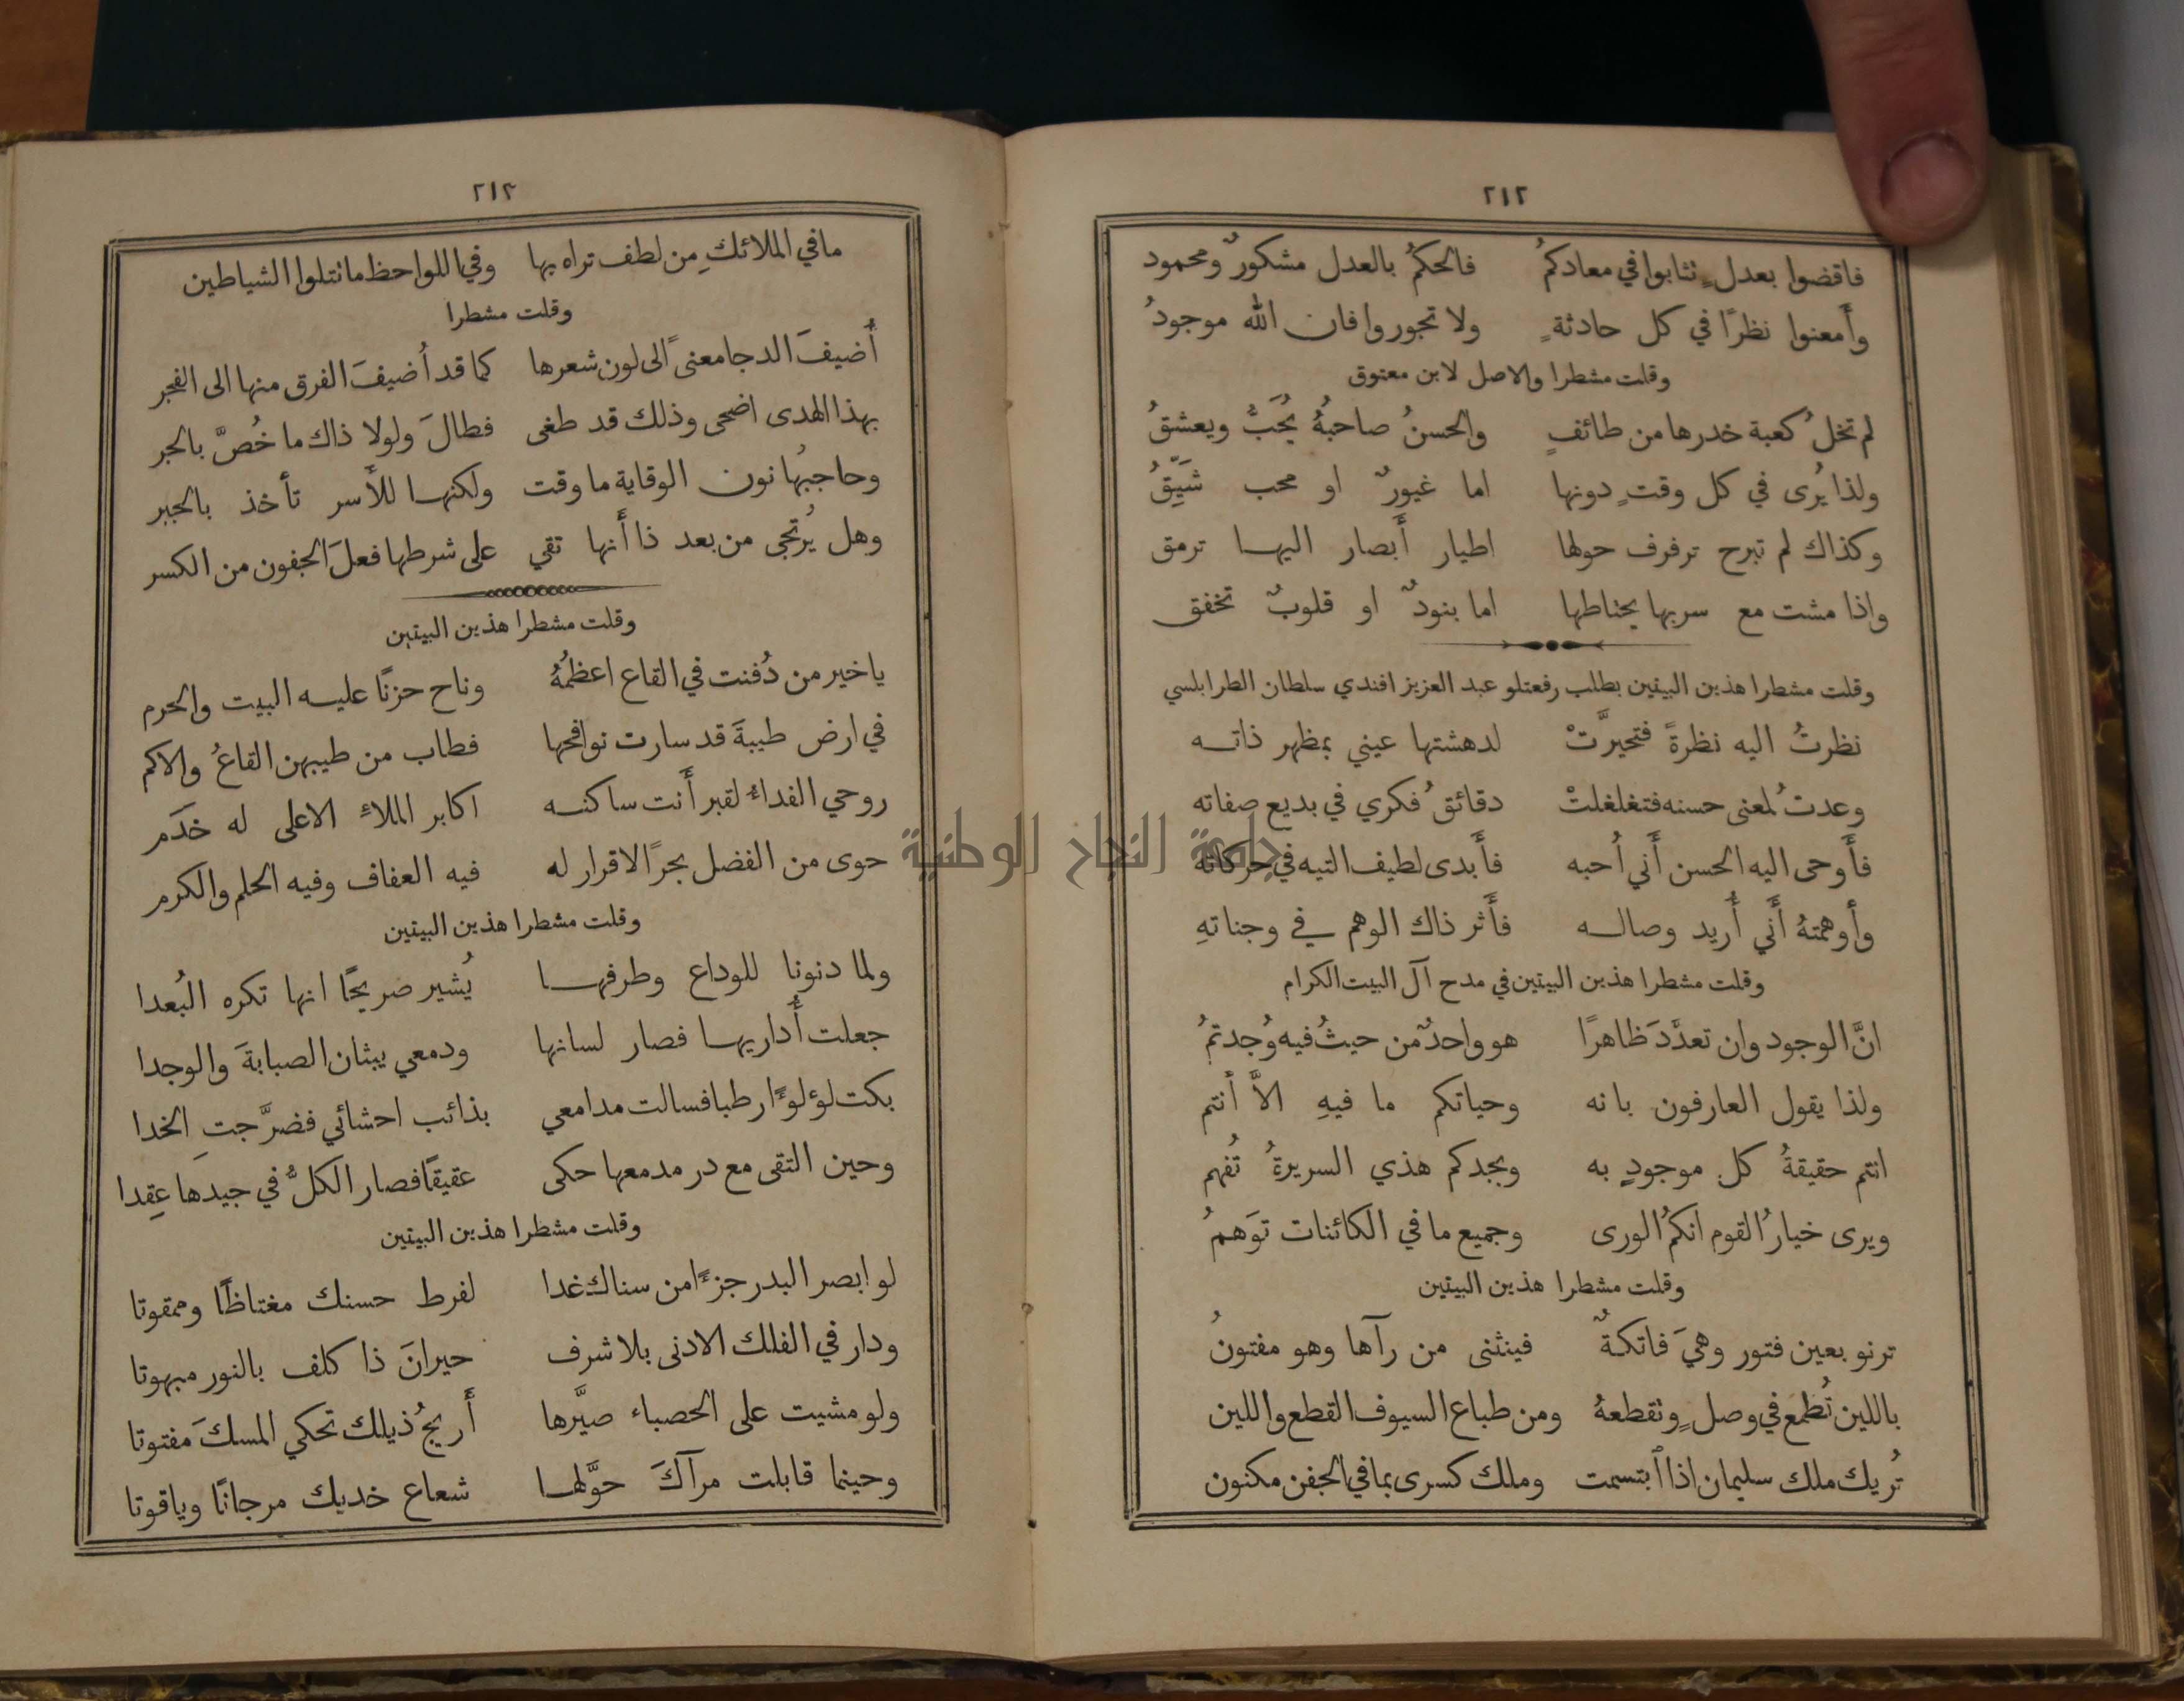 ٢١٢
فاقضوا بعدلٍ تثابوا في معادكمُ فالحكمُ بالعدل مشكورٌ ومحمود
وأَمعنوا نظرًا في كل حادثةٍ ولا تجوروا فان الله موجودُ
وقلت مشطرا والاصل لابن معتوق
لم تخلُ كعبة خدرها من طائفٍ والحسنُ صاحبهُ يُحَبُّ ويعشقُ
ولذا يُرى في كل وقتٍ دونها اما غيورٌ او محب شَيِّقُ
وكذاك لم تبرح ترفرف حولها اطيار أَبصار اليها ترمق
واذا مشت مع سربها يحتاطها اما بنودٌ او قلوبٌ تخفق
وقلت مشطرا هذين البيتين بطلب رفعتلو عبد العزيز افندي سلطان الطرابلسي
نظرتُ اليه نظرةً فتحيرَّتْ لدهشتها عيني بمظهر ذاته
وعدتُ لمعنى حسنه فتغلغلتْ دقائقُ فكري في بديع صفاته
فأَوحى اليه الحسن أَني أُحبه فأَبدى لطيف التيه في حركاته
وأَوهمتهُ أَني أُريد وصاله فأَثر ذاك الوهم في وجناتهِ
وقلت مشطرا هذين البيتين في مدح آل البيت الكرام
انَّ الوجود وان تعدَّدَ ظاهرًا هو واحدٌ من حيثُ فيه وُجدتمُ
ولذا يقول العارفون بانه وحياتكم ما فيهِ الاَّ أنتم
انتم حقيقةُ كل موجودٍ به وبجدكم هذي السريرةُ تُفهم
ويرى خيارُ القوم انكمُ الورى وجميع ما في الكائنات توَهمُ
وقلت مشطرا هذين البيتين
ترنو بعين فتور وهيَ فاتكةٌ فينثنى من رآها وهو مفتونُ
باللين تُطمع في وصلٍ وتقطعهُ ومن طباع السيوف القطع واللين
تُريك ملك سليمان اذا ابتسمت وملك كسرى بما في الجفن مكنون
٢١٣
ما في الملائكِ من لطف تراه بها وفي اللواحظ ما تتلوا الشياطين
وقلت مشطرا
أُضيفَ الدجا معنىً الى لون شعرها كما قد أُضيفَ الفرق منها الى الفجر
بهذا الهدى اضحى وذلك قد طغى فطالَ ولولا ذاك ما خُصَّ بالجر
وحاجبُها نون الوقاية ما وقت ولكنها للأَسر تأخذ بالجبر
وهل يُرتجى من بعد ذا أَنها تقي على شرطها فعلَ الجفون من الكسر
وقلت مشطرا هذين البيتين
يا خير من دُفنت في القاع اعظمُهُ وناح حزنًا عليه البيت والحرم
في ارض طيبةَ قد سارت نوافحها فطاب من طيبهن القاعُ والاكم
روحي الفداءُ لقبر أَنت ساكنه اكابر الملاءِ الاعلى له خدَم
حوى من الفضل بحرًا لا قرار له فيه العفاف وفيه الحلم والكرم
وقلت مشطرا هذين البيتين
ولما دنونا للوداع وطرفها يُشير صريحًا انها تكره البُعدا
جعلت أُداريها فصار لسانها ودمعي يبثان الصبابةَ والوجدا
بكت لؤلوءًا رطبا فسالت مدامعي بذائب احشائي فضرَّجتِ الخدا
وحين التقى مع در مدمعها حكى عقيقًا فصار الكلُّ في جيدها عِقدا
وقلت مشطرا هذين البيتين
لو ابصر البدر جزءًا من سناك غدا لفرط حسنك مغتاظًا وممقوتا
ودار في الفلك الادنى بلا شرف حيرانَ ذا كلف بالنور مبهوتا
ولو مشيت على الحصباء صيَّرها أَريجُ ذيلك تحكي المسكَ مفتوتا
وحينما قابلت مرآكَ حوَّلها شعاع خديك مرجانًا وياقوتا
جامعة النجاح الوطنية